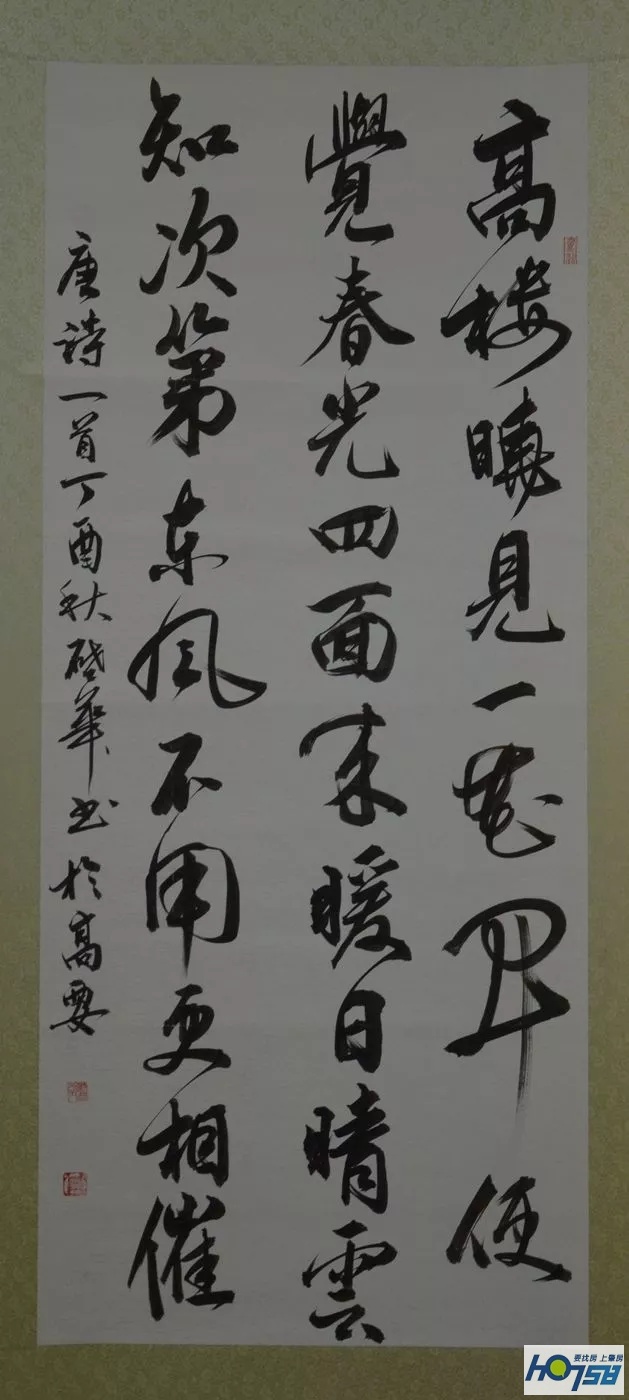 高楼曉見一花開便
覺春光四面来暖日晴雲
知次第东風不用更相催
唐詩一首丁酉秋啓華书於高要
要找房 上肇房
HO758